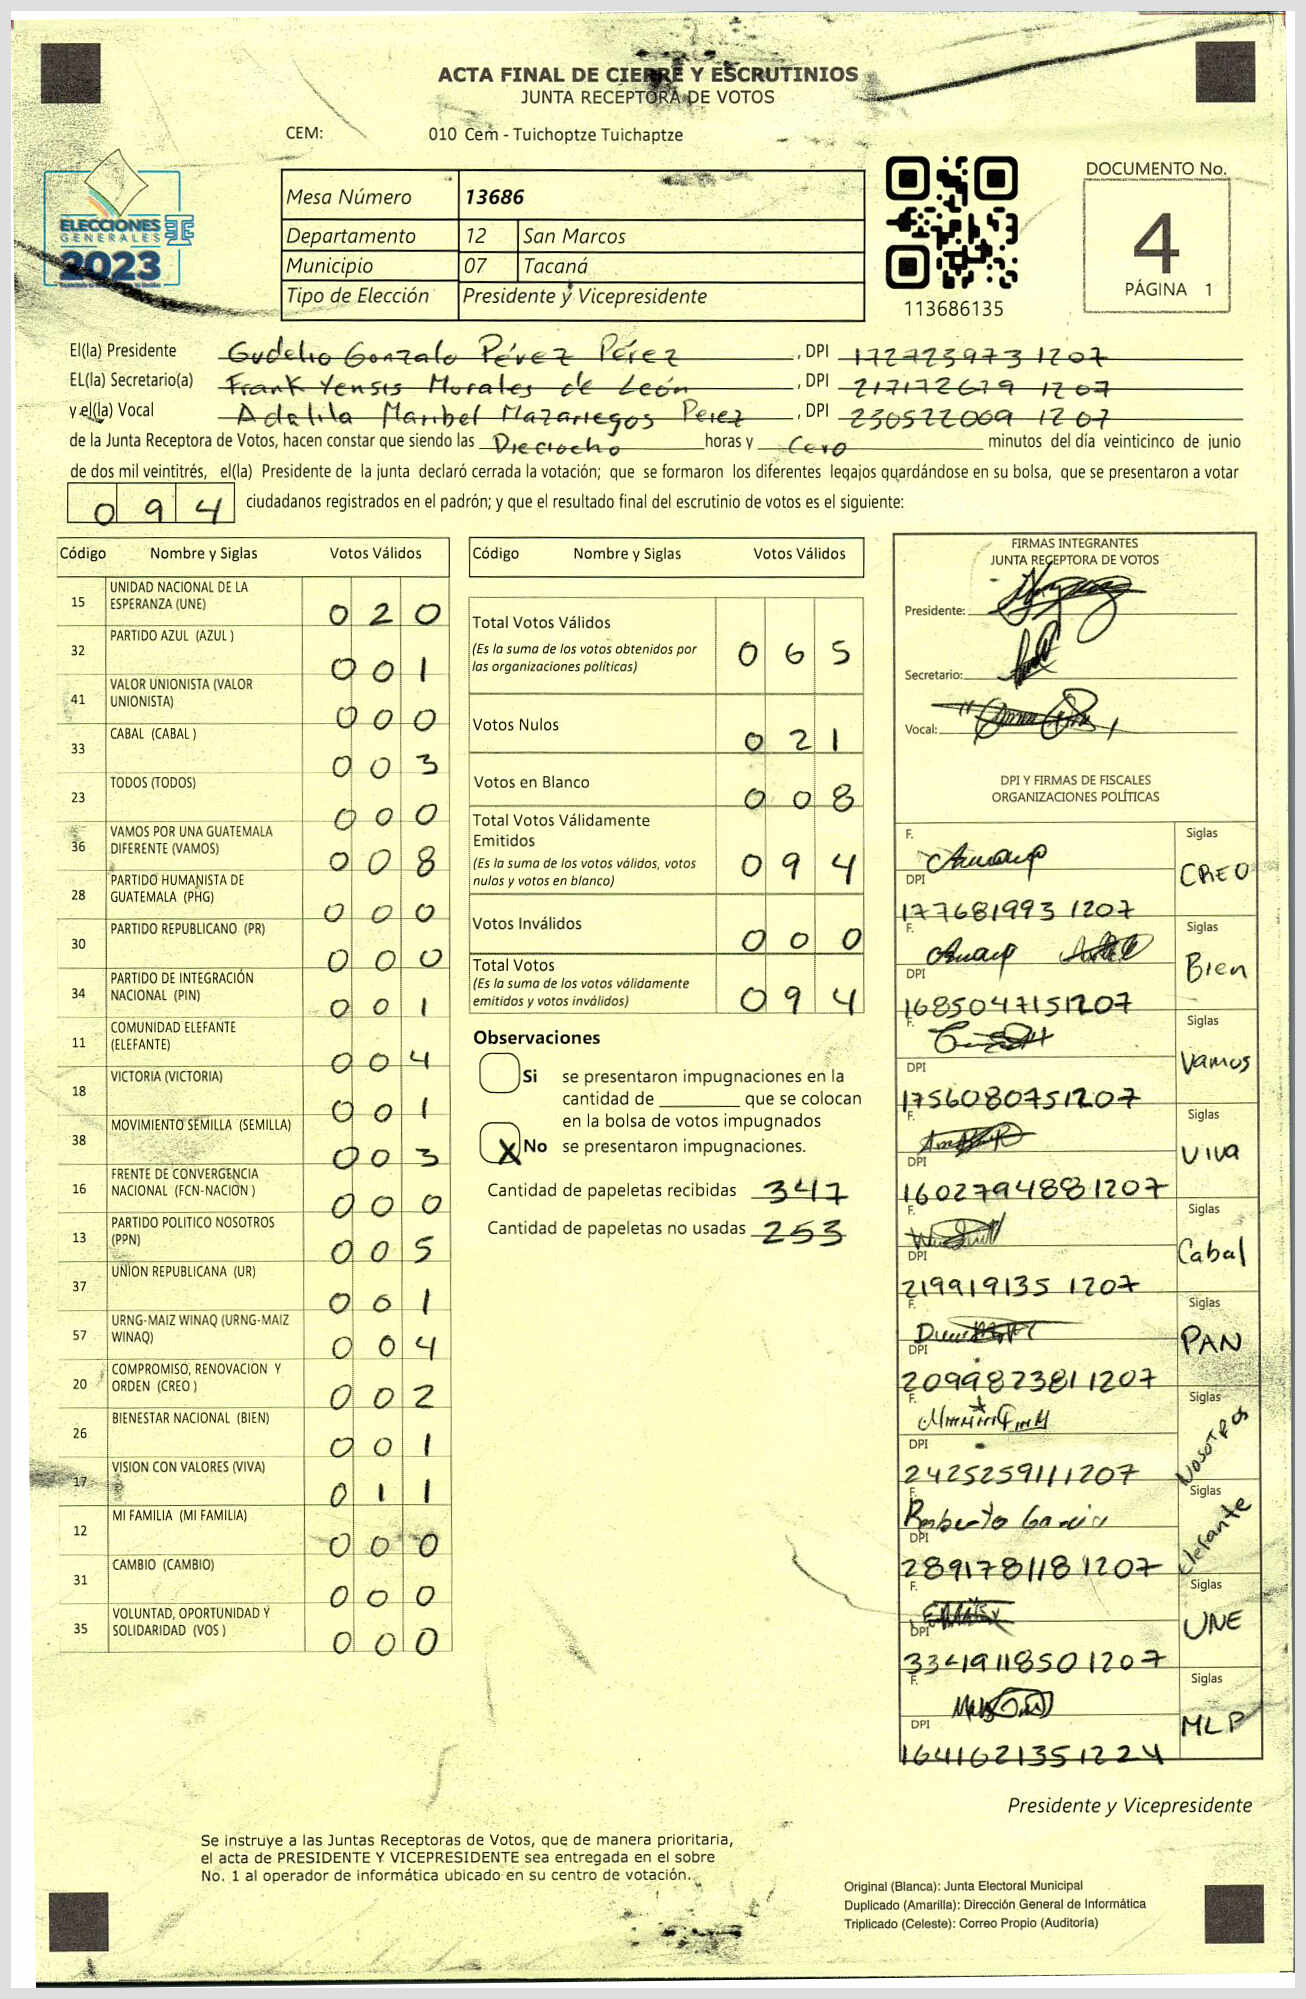 ACTA FINAL DE CIERRE Y ESCRUTINIOS
JUNTA RECEPTORA DE VOTOS
CEM: 010 Cem - Tuichoptze Tuichaptze
ELECCIONES
GENERALES
2023
Mesa Número 13686
Departamento 12 San Marcos
Municipio 07 Tacaná
Tipo de Elección Presidente y Vicepresidente
113686135
DOCUMENTO No.
4
PÁGINA 1
El(la) Presidente Gudelio Gonzalo Pérez Pérez, DPI 172723973 1207
EL(la) Secretario(a) Frank Yensis Morales de León, DPI 217172679 1207
y el(la) Vocal Adalila Maribel Mazariegos Perez, DPI 230522009 1207
de la Junta Receptora de Votos, hacen constar que siendo las Dieciocho horas y Cero minutos del día veinticinco de junio
de dos mil veintitrés, el(la) Presidente de la junta declaró cerrada la votación; que se formaron los diferentes legajos guardándose en su bolsa, que se presentaron a votar
094 ciudadanos registrados en el padrón; y que el resultado final del escrutinio de votos es el siguiente:
Código Nombre y Siglas Votos Válidos
15 UNIDAD NACIONAL DE LA ESPERANZA (UNE) 020
32 PARTIDO AZUL (AZUL ) 001
41 VALOR UNIONISTA (VALOR UNIONISTA) 000
33 CABAL (CABAL ) 003
23 TODOS (TODOS) 000
36 VAMOS POR UNA GUATEMALA DIFERENTE (VAMOS) 008
28 PARTIDO HUMANISTA DE GUATEMALA (PHG) 000
30 PARTIDO REPUBLICANO (PR) 000
34 PARTIDO DE INTEGRACIÓN NACIONAL (PIN) 001
11 COMUNIDAD ELEFANTE (ELEFANTE) 004
18 VICTORIA (VICTORIA) 001
38 MOVIMIENTO SEMILLA (SEMILLA) 003
16 FRENTE DE CONVERGENCIA NACIONAL (FCN-NACION ) 000
13 PARTIDO POLITICO NOSOTROS (PPN) 005
37 UNION REPUBLICANA (UR) 001
57 URNG-MAIZ WINAQ (URNG-MAIZ WINAQ) 004
20 COMPROMISO, RENOVACION Y ORDEN (CREO ) 002
26 BIENESTAR NACIONAL (BIEN) 001
17 VISION CON VALORES (VIVA) 011
12 MI FAMILIA (MI FAMILIA) 000
31 CAMBIO (CAMBIO) 000
35 VOLUNTAD, OPORTUNIDAD Y SOLIDARIDAD (VOS ) 000
Código Nombre y Siglas Votos Válidos
Total Votos Válidos 065
(Es la suma de los votos obtenidos por
las organizaciones políticas)
Votos Nulos 021
Votos en Blanco 008
Total Votos Válidamente
Emitidos 094
(Es la suma de los votos válidos, votos
nulos y votos en blanco)
Votos Inválidos 000
Total Votos 094
(Es la suma de los votos válidamente
emitidos y votos inválidos)
Observaciones
Si se presentaron impugnaciones en la
cantidad de ________ que se colocan
en la bolsa de votos impugnados
X No se presentaron impugnaciones.
Cantidad de papeletas recibidas 347
Cantidad de papeletas no usadas 253
FIRMAS INTEGRANTES
JUNTA RECEPTORA DE VOTOS
Presidente:
Secretario:
Vocal:
DPI Y FIRMAS DE FISCALES
ORGANIZACIONES POLÍTICAS
F. Siglas CREO
DPI 177681993 1207
F. Siglas Bien
DPI 1685047151207
F. Siglas Vamos
DPI 1756080751207
F. Siglas Viva
DPI 1602794881207
F. Siglas Cabal
DPI 219919135 1207
F. Siglas PAN
DPI 2099823811207
F. Siglas Nosotros
DPI 2425259111207
F. Roberto Garcia Siglas elefante
DPI 2891781181207
F. Siglas UNE
DPI 3341911850 1207
F. Siglas MLP
DPI 1641621351224
Presidente y Vicepresidente
Se instruye a las Juntas Receptoras de Votos, que de manera prioritaria,
el acta de PRESIDENTE Y VICEPRESIDENTE sea entregada en el sobre
No. 1 al operador de informática ubicado en su centro de votación.
Original (Blanca): Junta Electoral Municipal
Duplicado (Amarilla): Dirección General de Informática
Triplicado (Celeste): Correo Propio (Auditoría)